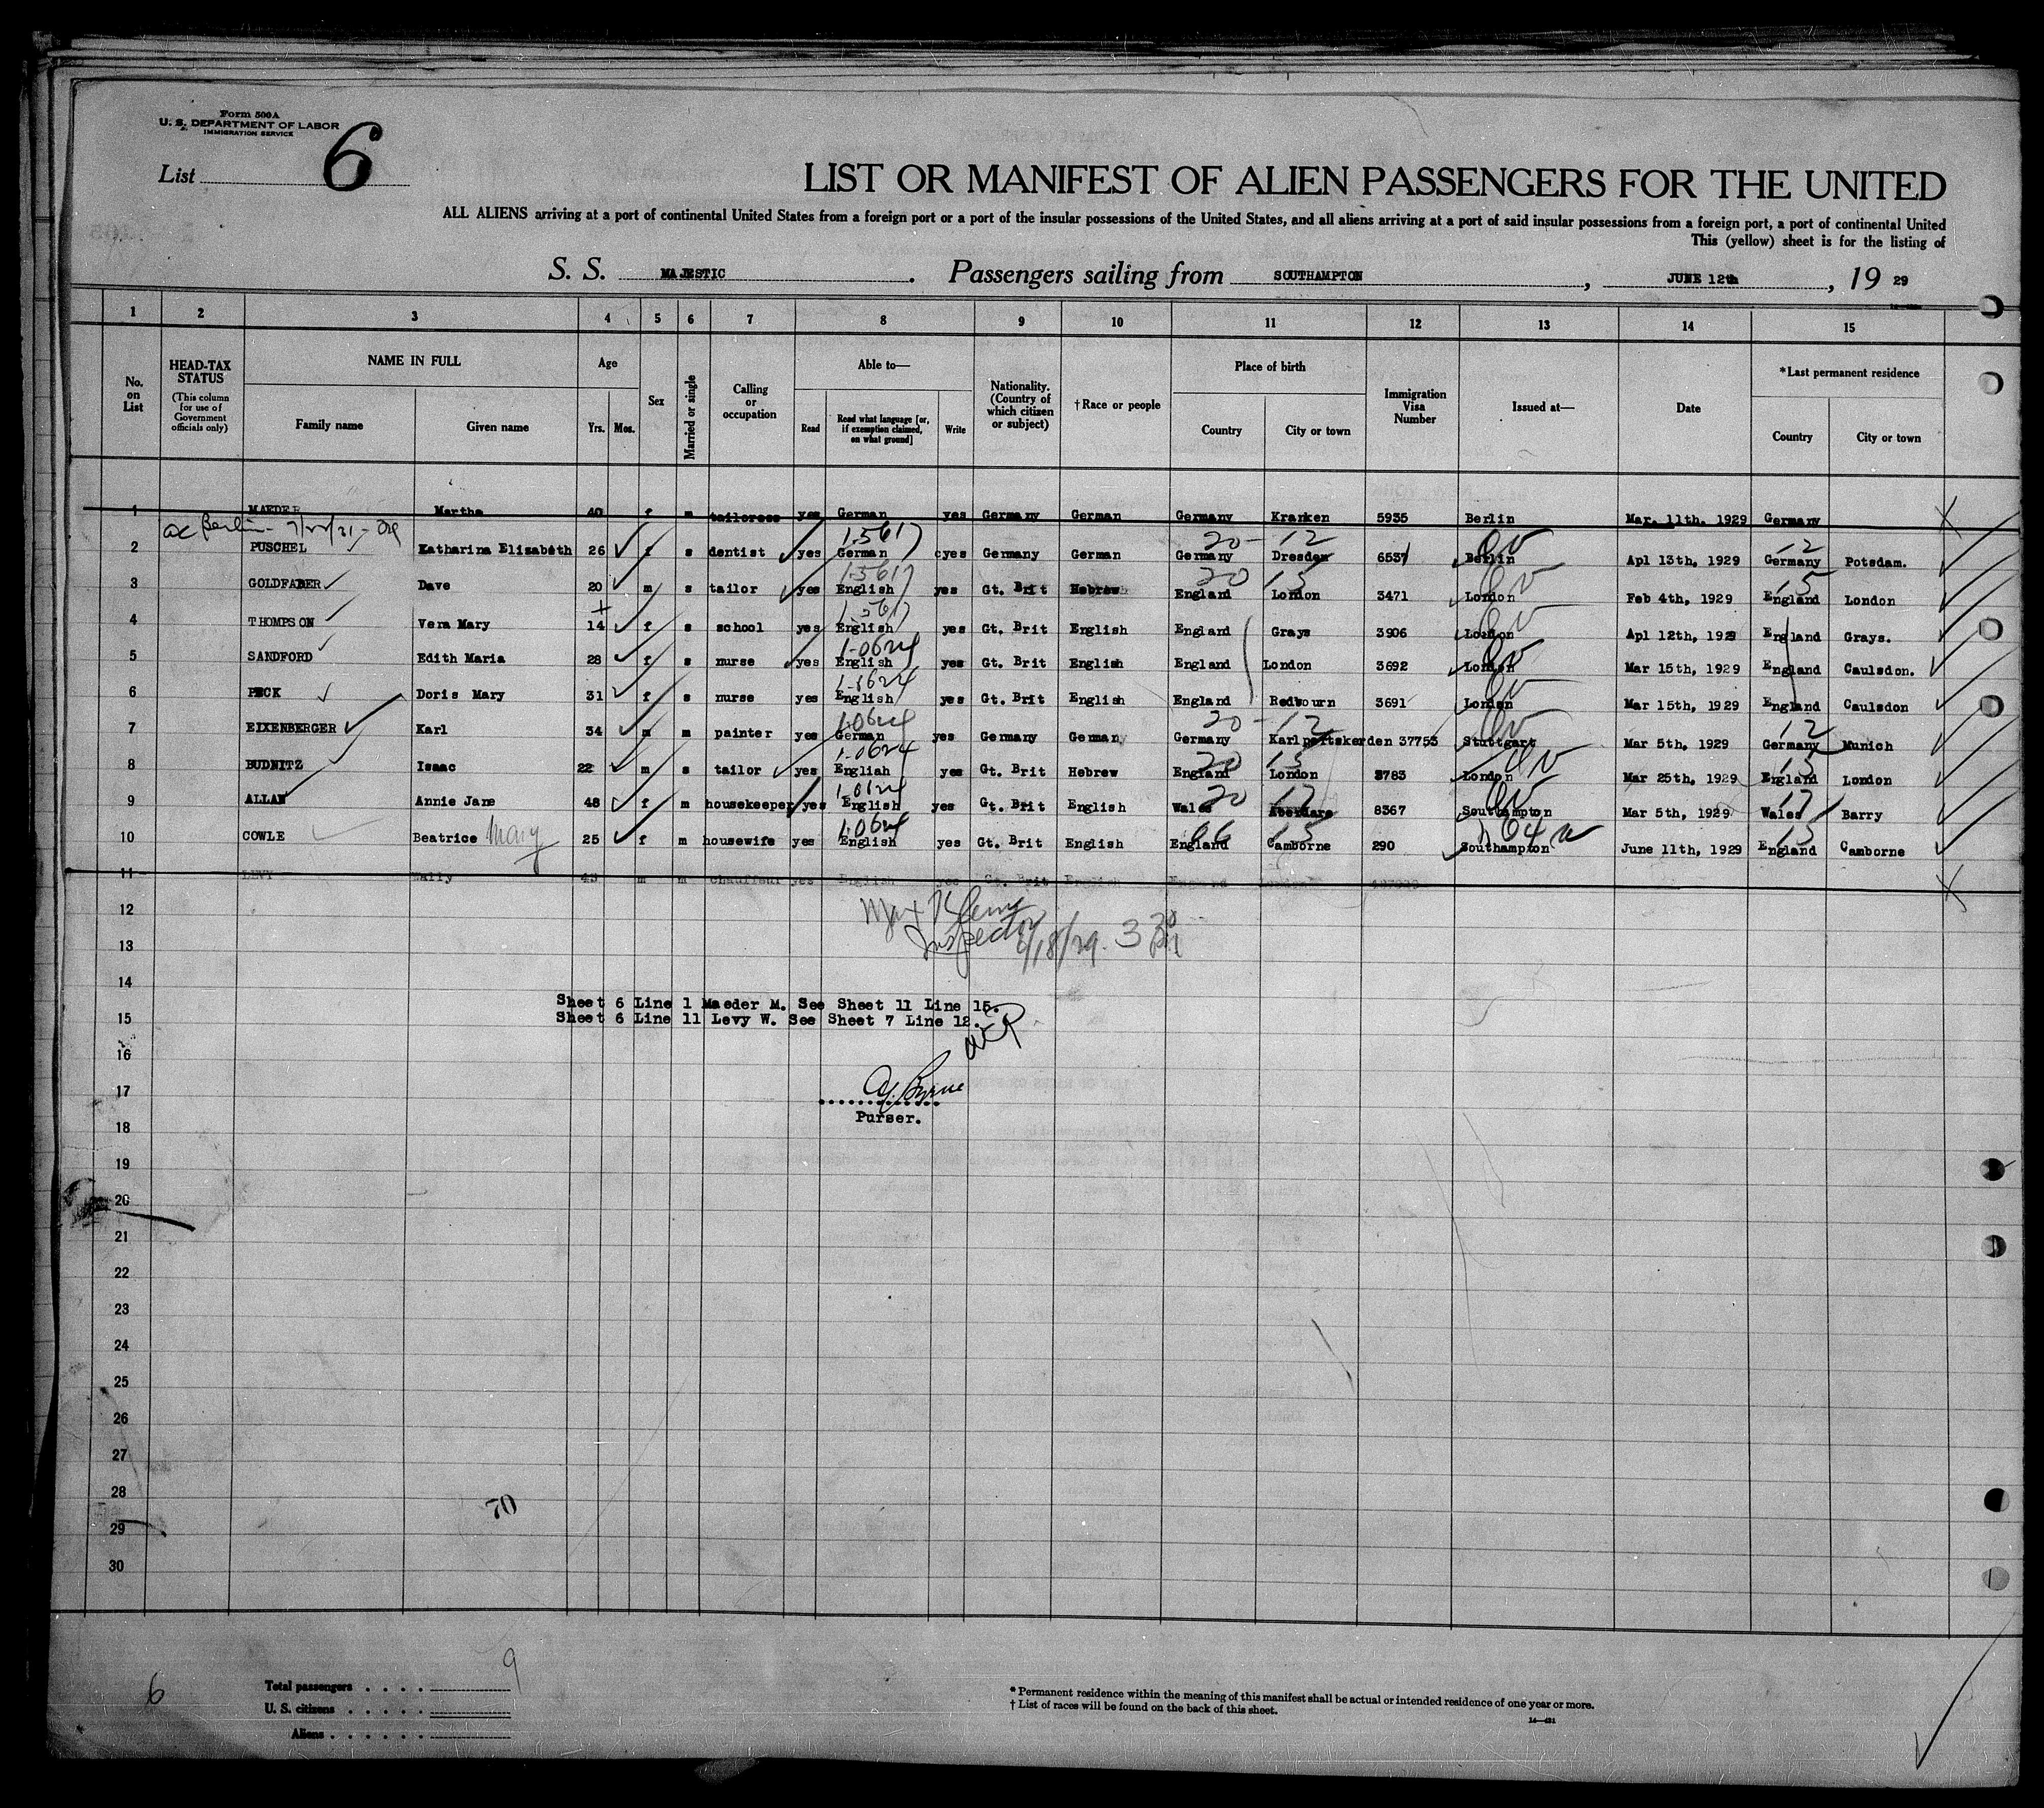 Form 500A
U. S. DEPARTMENT OF LABOR
IMMIGRATION SERVICE
List 6
LIST OR MANIFEST OF ALIEN PASSENGERS FOR THE UNITED
ALL ALIENS arriving at a port of continental United States from a foreign port or a port of the insular possessions of the United States, and all aliens arriving at a port of said insular possessions from a foreign port, a port of continental United
This (yellow) sheet is for the listing of
S. S. MAJESTIC. Passengers sailing from SOUTHAMPTON, JUNE 12th, 19 29
1 2 3 4 5 6 7 8 9 10 11 12 13 14 15
No. on List
HEAD-TAX STATUS (This column for use of Government officials only)
NAME IN FULL
Family name Given name
Age
Yrs. Mos.
Sex
Married or single
Calling or occupation
Able to—
Read Read what language [or, if exemption claimed, on what ground] Write
Nationality. (Country of which citizen or subject)
†Race or people
Place of birth
Country City or town
Immigration Visa Number
Issued at—
Date
*Last permanent residence
Country City or town
1 MAEDER Martha 40 f m tailoress yes German yes Germany German Germany Kranken 5935 Berlin Mar. 11th. 1929 Germany
Berlin - 7/22/31 -
2 PUSCHEL Katharina Elisabeth 26 f s dentist yes German yes Germany German Germany Dresden 6537 Berlin Apl 13th, 1929 Germany Potsdam.
3 GOLDFABER Dave 20 m s tailor yes English yes Gt. Brit Hebrew England London 3471 London Feb 4th, 1929 England London
4 THOMPSON Vera Mary 14 f s school yes English yes Gt. Brit English England Grays 3906 London Apl 12th, 1929 England Grays.
5 SANDFORD Edith Maria 28 f s nurse yes English yes Gt. Brit English England London 3692 London Mar 15th, 1929 England Caulsdon.
6 PECK Doris Mary 31 f s nurse yes English yes Gt. Brit English England Redbourn 3691 London Mar 15th, 1929 England Caulsdon
7 EIXENBERGER Karl 34 m m painter yes German yes Germany German Germany 37753 Stuttgart Mar 5th, 1929 Germany Munich
8 BUDNITZ Isaac 22 m s tailor yes English yes Gt. Brit Hebrew England London 3783 London Mar 25th, 1929 England London
9 ALLAN Annie Jane 48 f m housekeeper yes English yes Gt. Brit English Wales Aberdare 8367 Southampton Mar 5th, 1929 Wales Barry
10 COWLE Beatrice Mary 25 f m housewife yes English yes Gt. Brit English England Camborne 290 Southampton June 11th, 1929 England Camborne
11 LEVY Wally 43 m m chauffeur yes English yes Gt. Brit English England London
12
Inspector 6/18/29. 3
13
14
Sheet 6 Line 1 Maeder M. See Sheet 11 Line 15.
15
Sheet 6 Line 11 Levy W. See Sheet 7 Line 12.
16
17
Byrne
Purser.
18
19
20
21
22
23
24
25
26
27
28
70
29
30
6
9
Total passengers
U. S. citizens
Aliens
* Permanent residence within the meaning of this manifest shall be actual or intended residence of one year or more.
† List of races will be found on the back of this sheet.
14—421